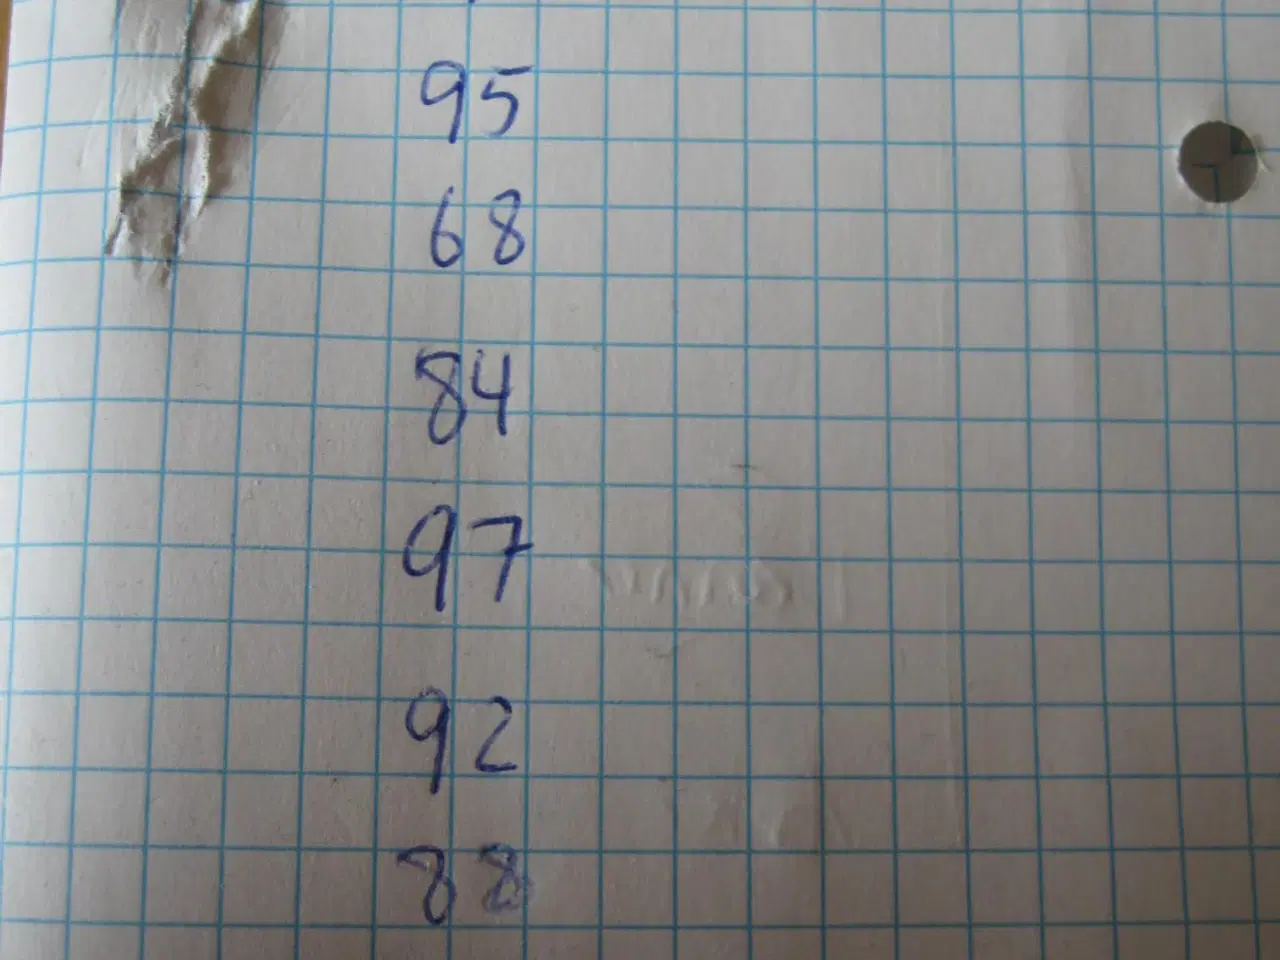 95
68
84
97
92
88